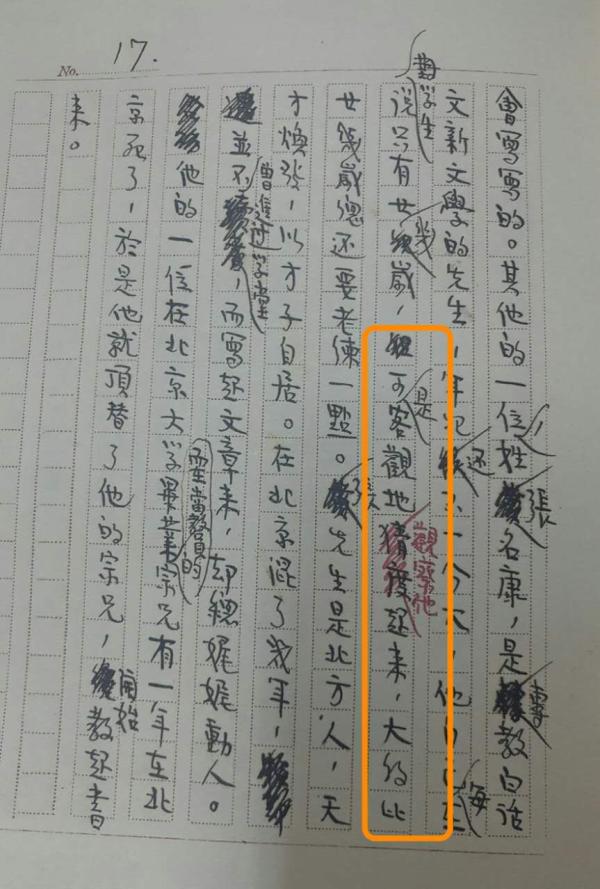 No. 17.
會寫寫的。其他的一位姓張名康,是專教白話
文新文學的先生,年紀还不一令大,他自己在每
對學生說只有廿幾歲,但是可客觀地觀察他猜度起來,大約比
廿幾歲總还要老練一點。張先生是北方人,天
才煥發,以才子自居。在北京混了幾年,
並不曾進过学堂,而寫起文章來,却總娓娓動人。
他的一位在北京大学畢業要當教員的宗兄有一年在北
京死了,於是他就頂替了他的宗兄,開始教起書
來。